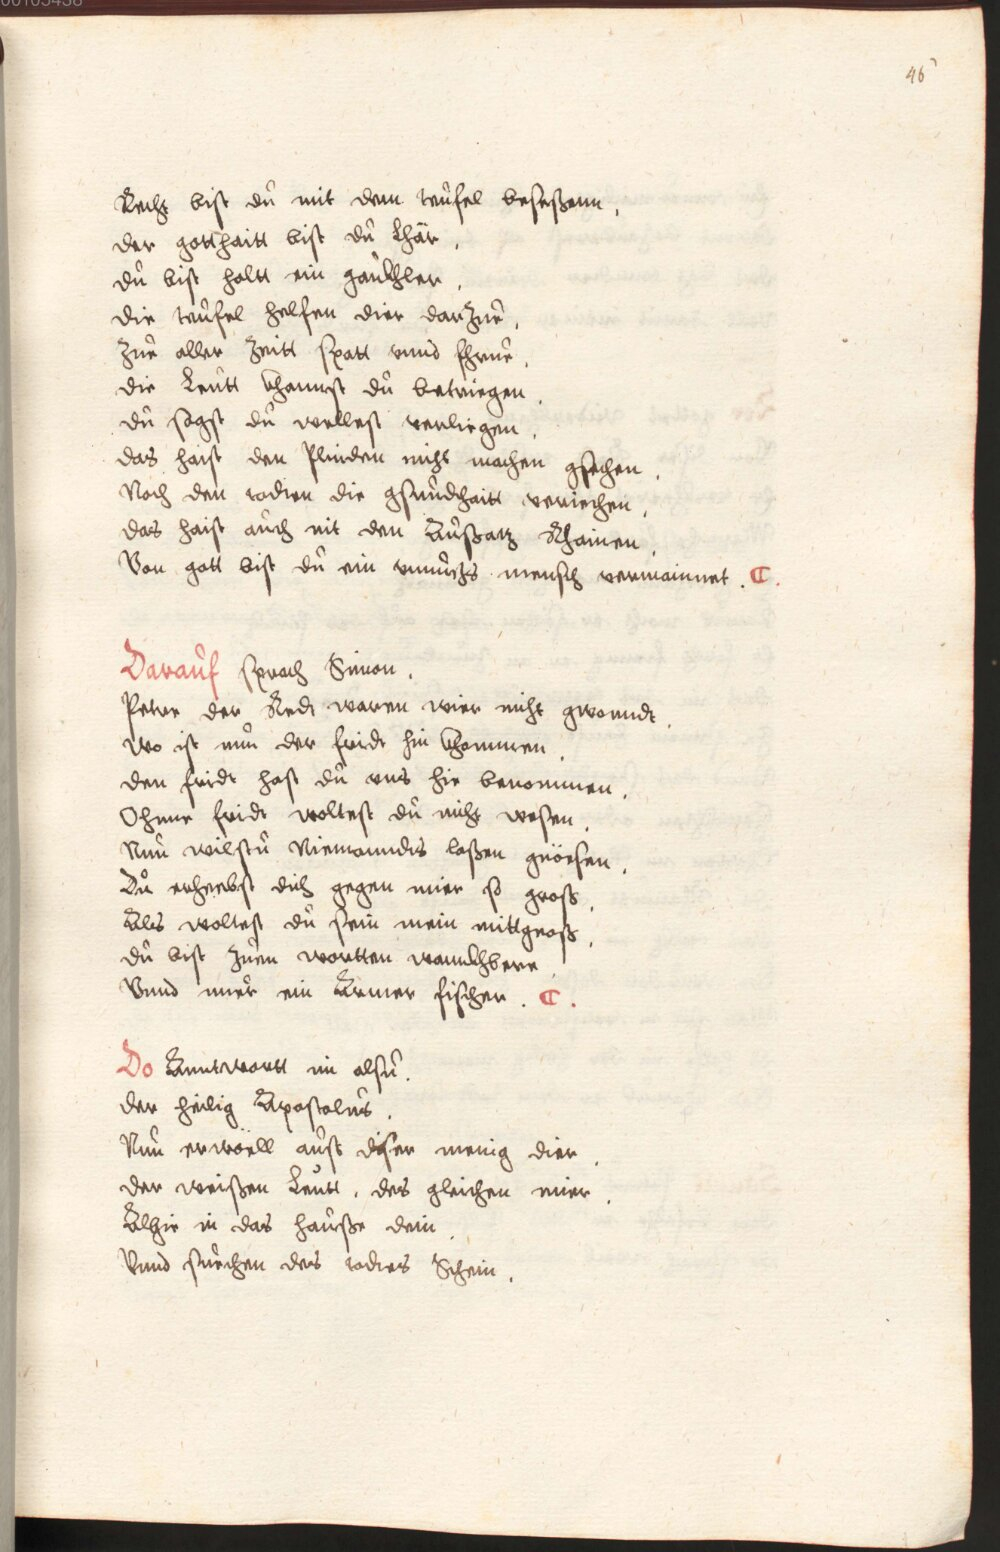 46
Recht bist dů mit dem teůfel beseßenn.
der gotthaitt bist dů Lhär.
dů bist haltt ein gaůkhler.
die teůfel helfen dier darzue.
Zůe aller Zeitt spatt vnnd fhrue.
die Leůtt khannst dů betriegen.
dů sagst dů wellest verliegen.
das haist den Plinden nicht machen gsechen.
Noch den todten die gsundthaitt veriechen.
das haist aůch nit den Außatz Rhainen.
Von gott bist dů ein mensch vermainnet. C.
Darauf sprach Simon.
Petre der Redt waren wier nicht gwonndt.
wo ist nůn der fridt hin khommen.
den fridt hast dů vns hie benommen.
Ohnne fridt woltest dů nicht weßen.
Nůn wilstů Niemanndts laßen
Dů erheebst dich gegen mier so groß.
Als woltest dů sein mein mittgnoß.
dů bist Zuen wortten wannkhbere.
Vnnd nuer ein Armer fischer. C.
Do Anntwortt im alsů.
der heilig Apostolůs.
Nůn erwoell aůst diser menig dier.
der weißen Leutt, des gleichen mier.
Alhie in das haůße dein.
Vnnd sůechen des todtes Schein.